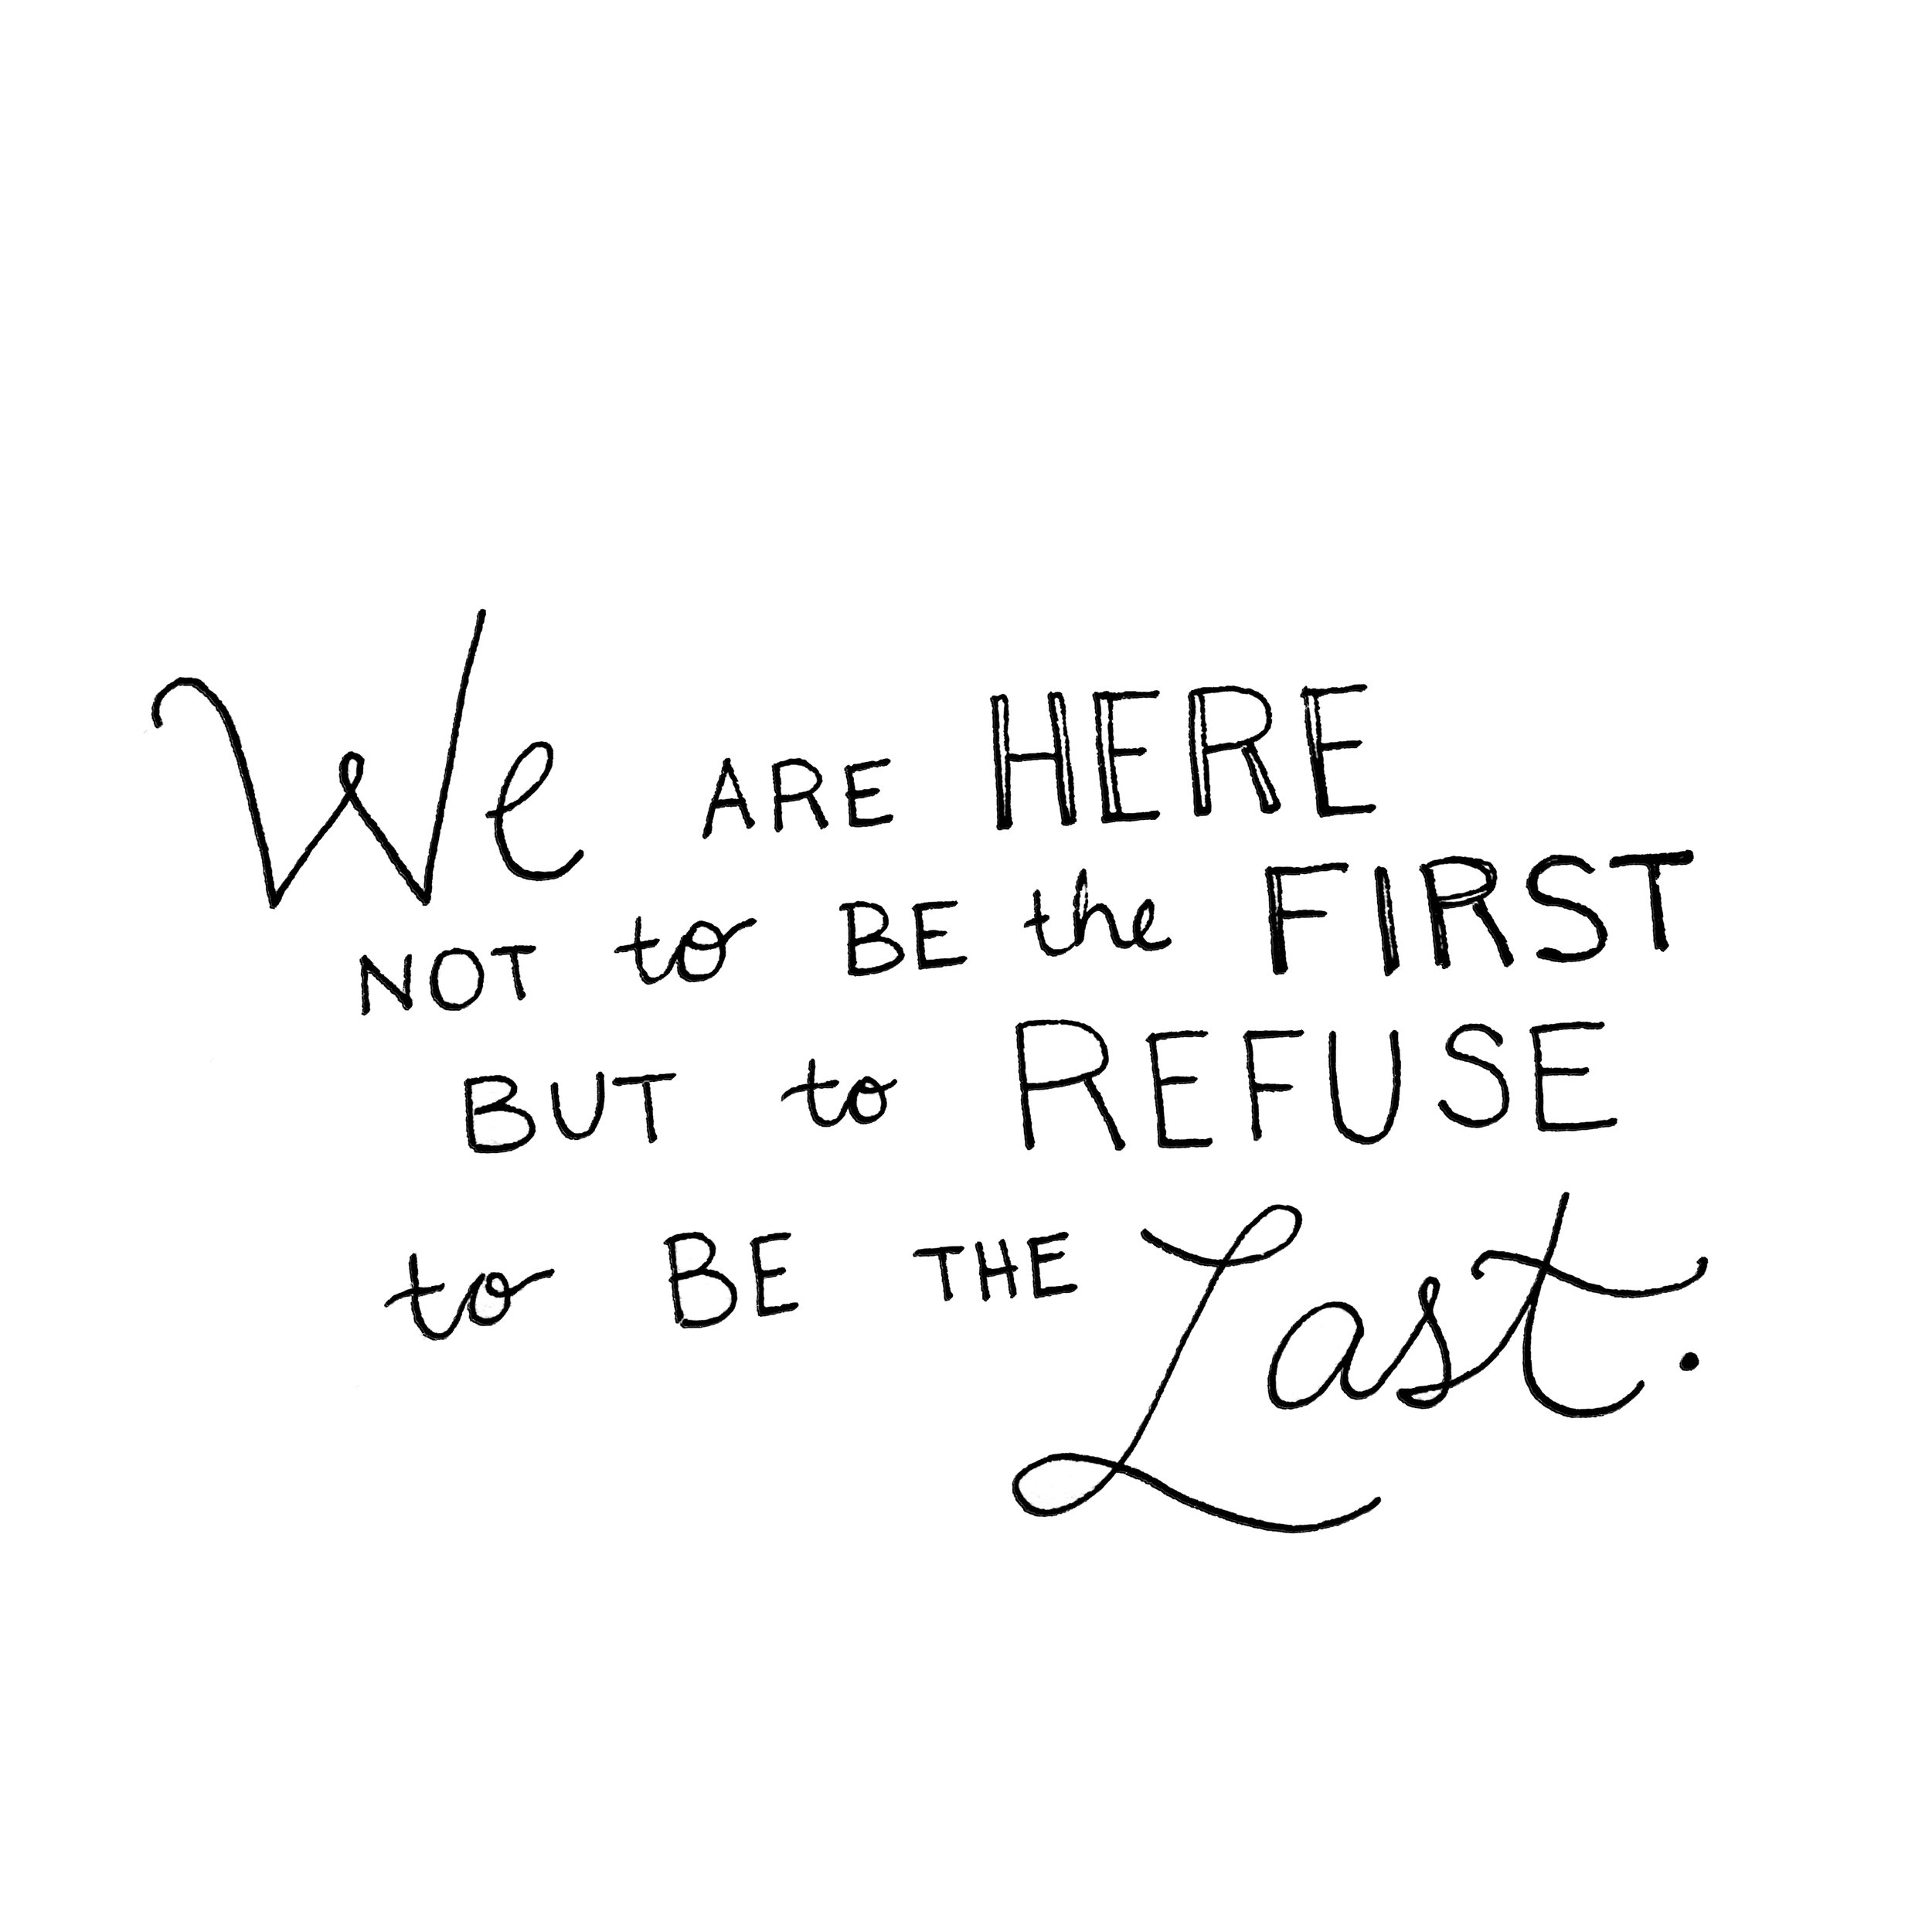 We ARE HERE
NOT to BE the FIRST
BUT to REFUSE
to BE THE Last.